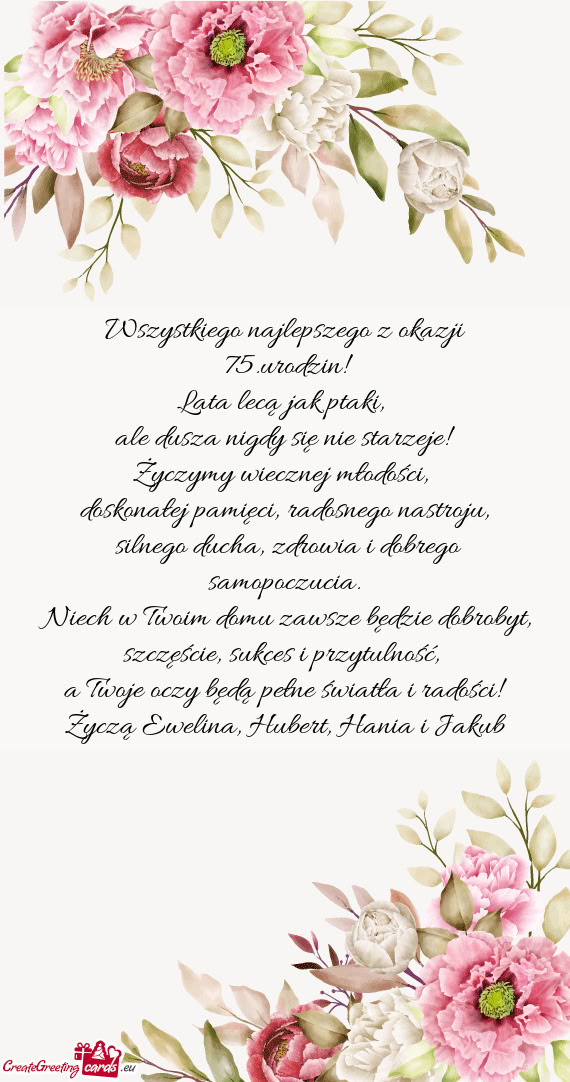 Wszystkiego najlepszego z okazji
75.urodzin!
Lata lecą jak ptaki,
ale dusza nigdy się nie starzeje!
Życzymy wiecznej młodości,
doskonałej pamięci, radosnego nastroju,
silnego ducha, zdrowia i dobrego
samopoczucia.
Niech w Twoim domu zawsze będzie dobrobyt,
szczęście, sukces i przytulność,
a Twoje oczy będą pełne światła i radości!
Życzą Ewelina, Hubert, Hania i Jakub
CreateGreeting cards .eu